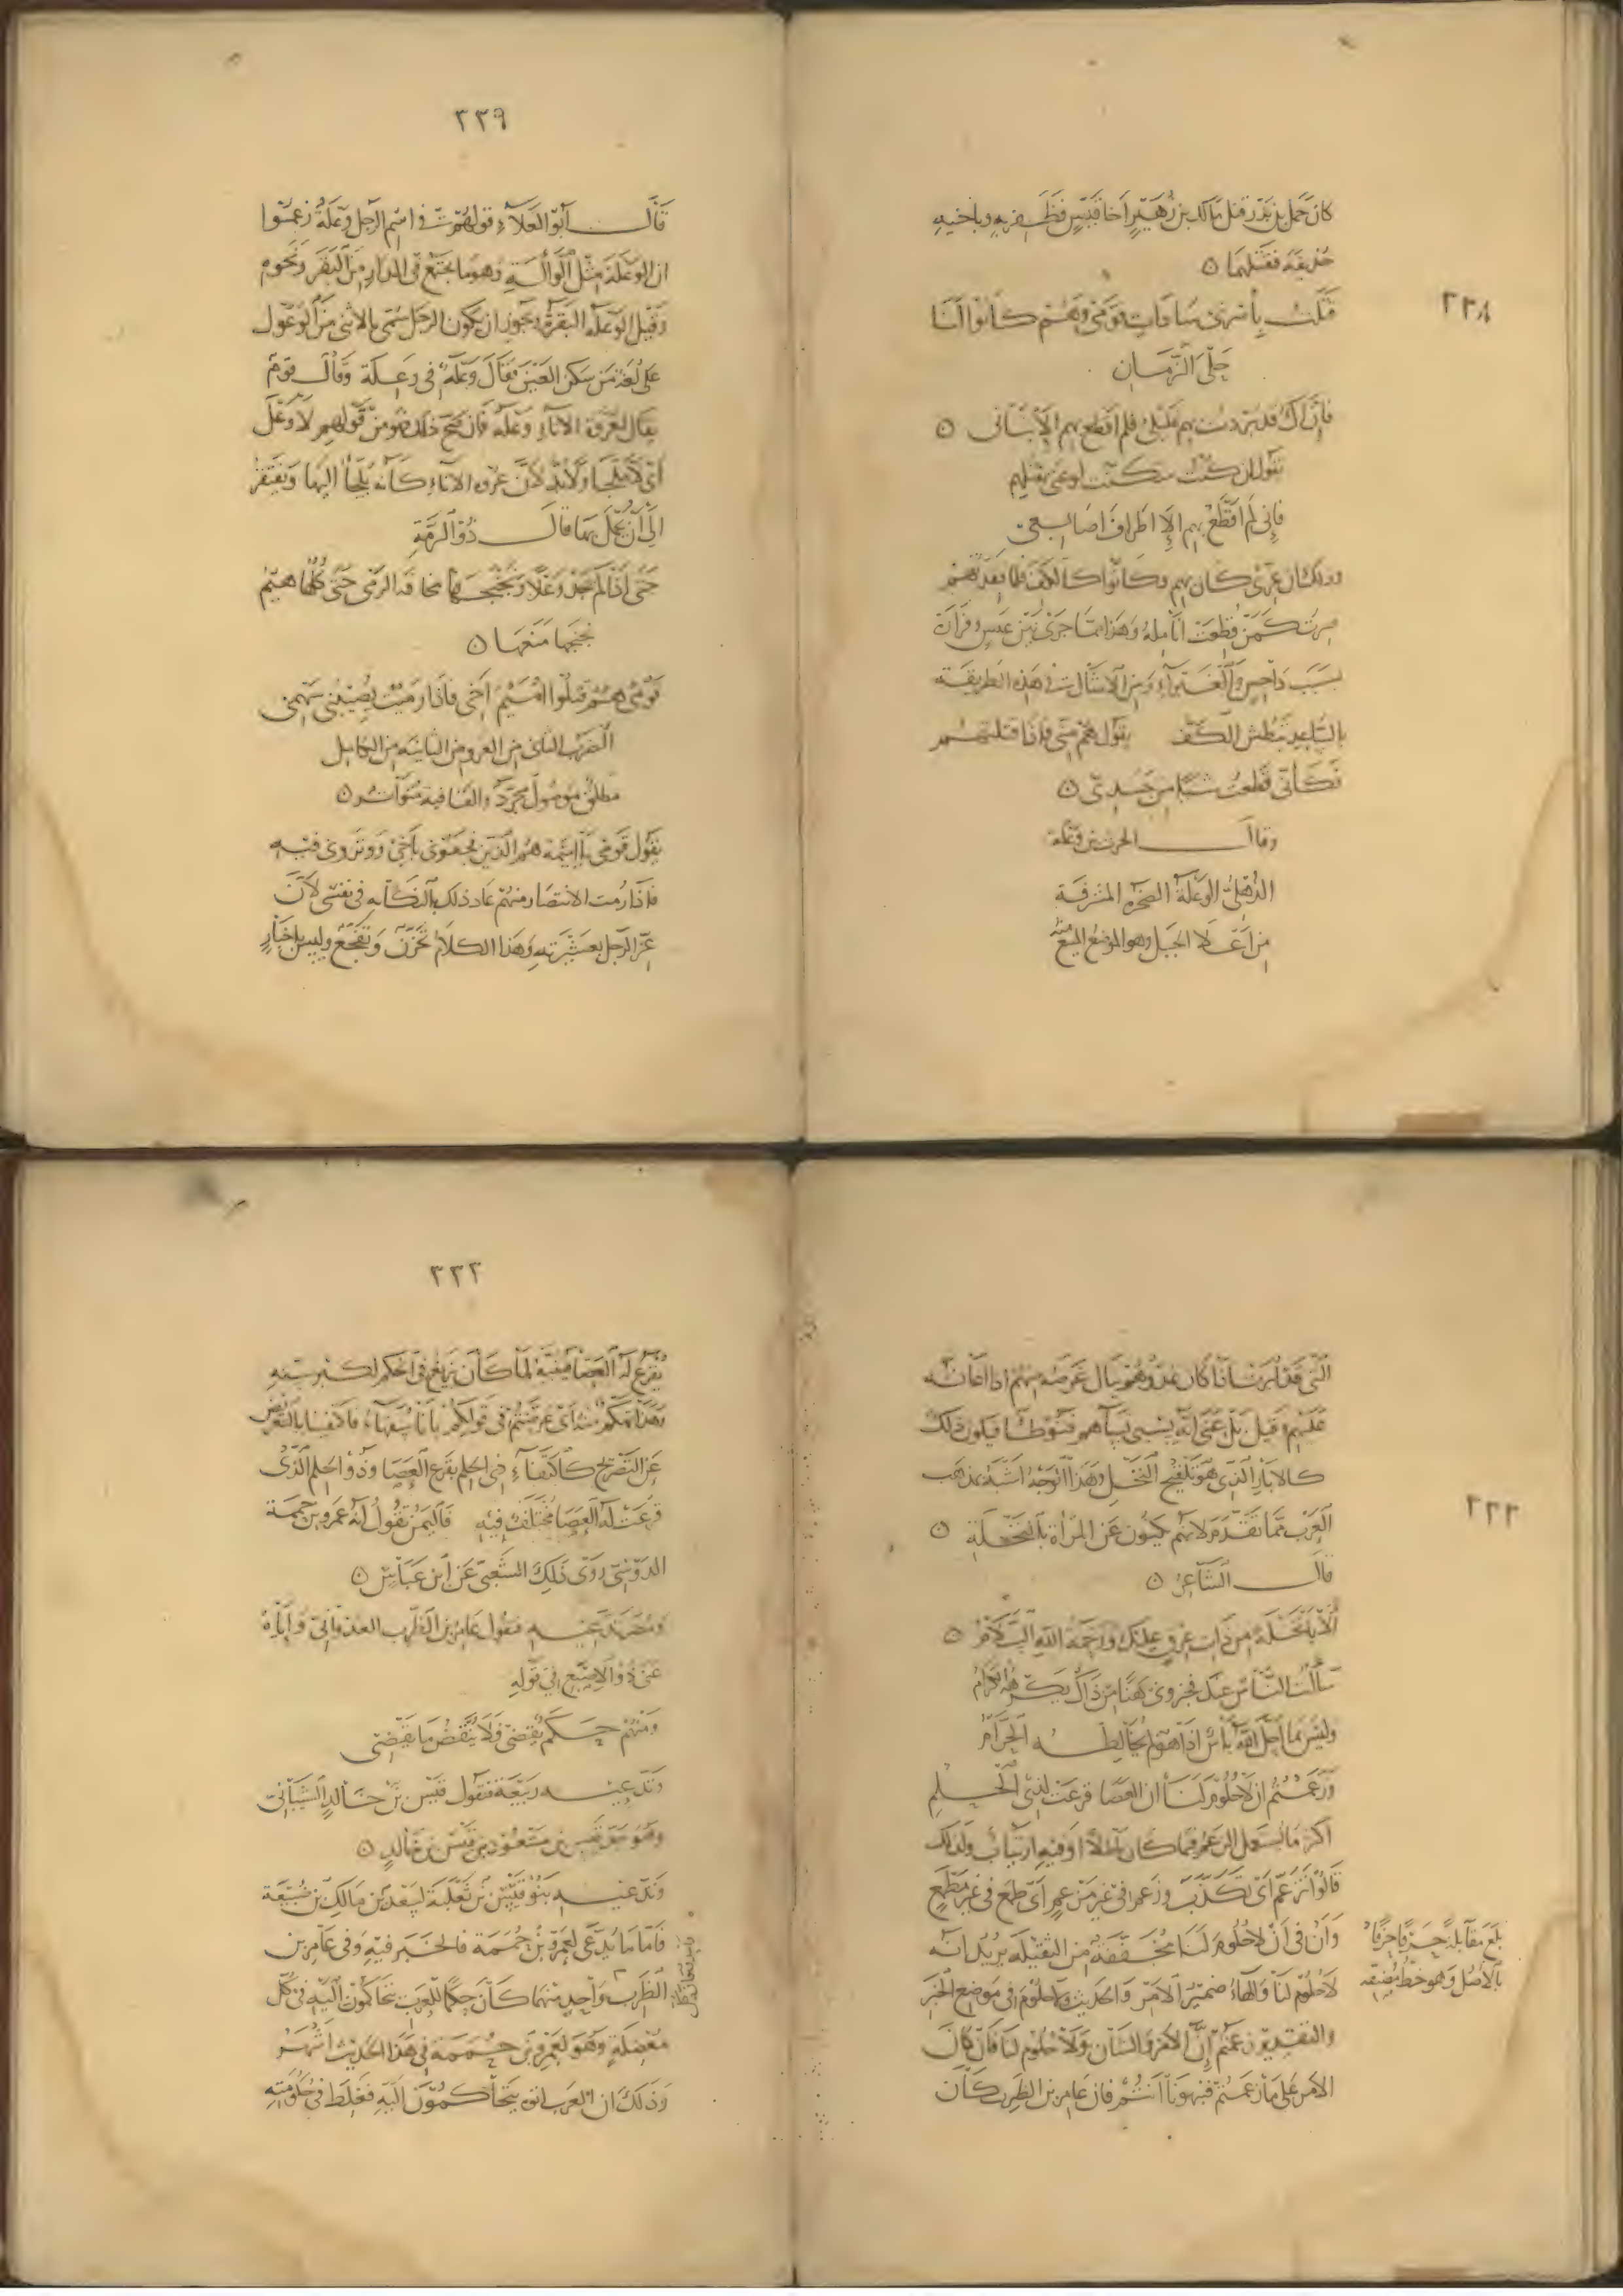 ٢٣٨
كان حمل بن بدر قتل مالك بن زهير اخا قيس فظفر به وباخيه
حذيفة فقتلهما ه
قتلت باشرتي سادات قومي وهم كانوا لنا
حلى الزمان
فان اك قد بردت بهم غليلي فلم اقطع بهم الا بناني ه
يقول ان كنت سكنت لوعتي بقتلهم
فاني لم اقطع بهم الا اطراف اصابعي
وذلك ان عزي كان بهم وكانوا كالكف فلما فقدتهم
صرت كمن قطعت انامله وهذا مما جرى بين عبس وفزارة
بسبب داحس والغبراء ومن الامثال في هذه الطريقة
بالساعد تبطش الكف يقول هم مني فاذا قتلتهم
فكاني قطعت شيئا من جسدي ه
وقال الحرث بن وعلة
الذهلي الوعلة الصخرة المشرفة
من اعلا الجبل وهو الموضع المنيع منه
٢٣٩
قال ابو العلاء قولهم في اسم الرجل وعلة زعموا
ان الوعلة مثل الوالة وهو ما يجتمع في الدار من البقر ونحوه
وقيل الوعلة البقرة ويجوز ان يكون الرجل سمي بالانثى من الوعول
على لغة من سكن العين فقال وعلة في وعلة وقال قوم
يقال لعروة الاناء وعلة فان صح ذلك فهو من قولهم لا وعل
اي لا ملجا ولا بد لان عروة الاناء كانه يلجا اليها ويفتقر
الى ان يحمل بها قال ذو الرمة
حتى اذا لم يجد وعلا ونجنجها مخافة الرمي حتى كلها هيم
نجنجها منعها ه
قومي هم قتلوا اميم اخي فاذا رميت يصيبني سهمي
الضرب الثاني من العروض الثانية من الكامل
مطلق موصول مجرد والقافية متواتر ه
يقول قومي يا اميمة هم الذين فجعوني باخي ووتروني فيه
فاذا رمت الانتصار منهم عاد ذلك بالنكاية في نفسي لان
عز الرجل بعشيرته وهذا الكلام تحزن وتفجع وليس باخبار
٢٣٢
التي قد ابرت اذا كان عدوهم ينال غرضه منهم اذا اعانه
عليهم وقيل بل عنى انه يسبي نساهم فتوطا فيكون ذلك
كالابار الذي هو تلقيح النخل وهذا الوجه اشبه بمذهب
العرب مما تقدم لانهم يكنون عن المراة بالنخلة ه
قال الشاعر ه
الا يا نخلة من ذات عرق عليك ورحمة الله السلام ه
سالت الناس عنك فخبروني هنا من ذاك يكرهه الكرام
وليس بما احل الله باس اذا هو لم يخالطه الحرام
وزعمتم ان لا حلوم لنا ان العصا قرعت لذي الحلم
اكثر ما يستعمل الزعم فيما كان باطلا او فيه ارتياب ولذلك
قالوا تزعم اي تكذب وزعم في غير مزعم اي طمع في غير مطمع
وان في ان لا حلوم لنا مخففة من الثقيلة يريد انه
لا حلوم لنا والهاء ضمير الامر والحديث ولا حلوم في موضع الخبر
والتقدير زعمتم ان الامر والشان ولا حلوم لنا فان كان
الامر على ما زعمتم فنبهونا انتم فان عامر بن الظرب كان
بلغ مقابلة حرفا حرفا
بالاصل وهو خط مصنفه
٢٣٣
يقرع له العصا فينتبه لما كان يزيغ في الحكم لكبر سنه
وهذا تهكم منه اي عرضتم في قولكم بانا سفهاء فاكتفينا بالتعريض
عن التصريح كاكتفاء ذي الحلم بقرع العصا وذو الحلم الذي
قرعت له العصا مختلف فيه فاليمن تقول انه عمرو بن حممة
الدوسي روى ذلك الشعبي عن ابن عباس ه
ومضر تدعيه فتقول عامر بن الظرب العدواني واياه
عنى ذو الاصبع في قوله
ومنهم حكم يقضي فلا ينقض ما يقضي
وتدعيه ربيعة فتقول قيس بن خالد الشيباني
وهو جد قيس بن مسعود بن قيس بن خالد ه
وتدعيه بنو قيس بن ثعلبة لسعد بن مالك بن ضبيعة
فاما ما يدعى لعمرو بن حممة فالخبر فيه وفي عامر بن
الظرب واحد منهما كان حكما للعرب يتحاكمون اليه في كل
معضلة وهو لعمرو بن حممة في هذا الحديث اشهر
وذلك ان العرب اتوه يتحاكمون اليه فغلط في حكومته